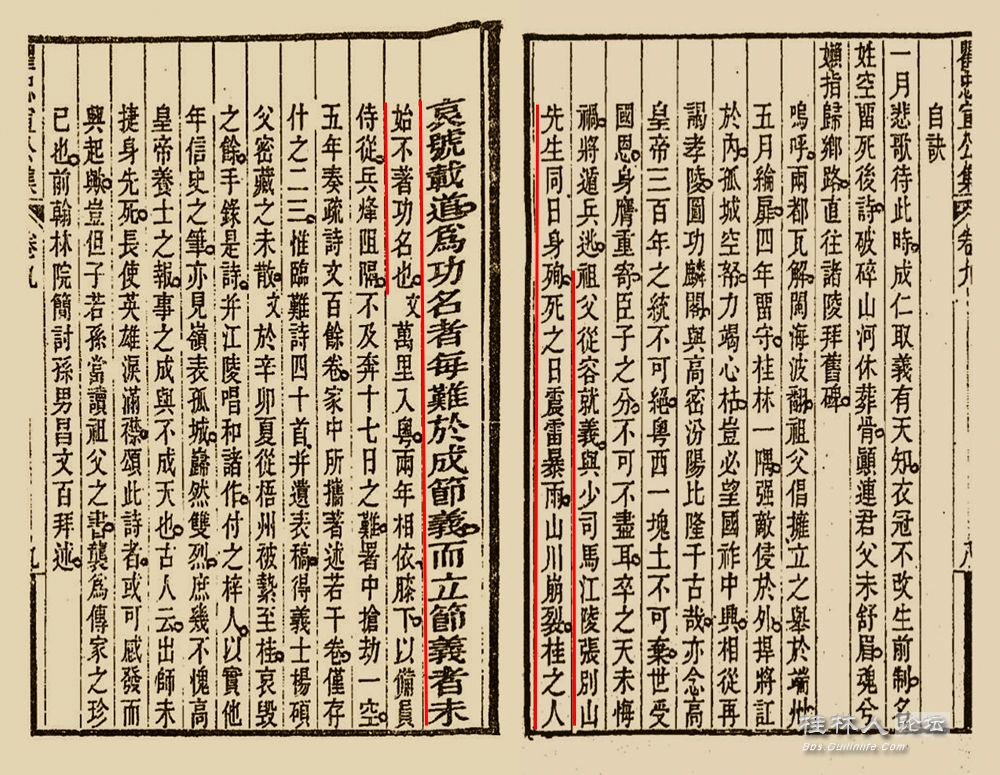 瞿忠宣公集 卷九 八
自訣
一月悲歌待此時。成仁取義有天知。衣冠不改生前制。名
姓空留死後詩。破碎山河休葬骨。顛連君父未舒眉。魂兮
嬾指歸鄉路。直往諸陵拜舊碑。
嗚呼。兩都瓦解。閩海波翻。祖父倡擁立之舉於端州
五月綸扉。四年留守。桂林一隅。强敵侵於外。捍將訌
於內。孤城空帑。力竭心枯。豈必望國祚中興。相從再
謁孝陵。圖功麟閣。與高密汾陽比隆千古哉。亦念高
皇帝三百年之統不可絕。粤西一塊土不可棄。世受
國恩。身膺重寄。臣子之分。不可不盡耳。卒之天未悔
禍。將遁兵逃。祖父從容就義。與少司馬江陵張別山
先生同日身殉。死之日。震雷暴雨。山川崩裂。桂之人
哀號載道。爲功名者每難於成節義。而立節義者未
始不著功名也。文萬里入粤。兩年相依膝下。以備員
侍從。兵烽阻隔。不及奔十七日之難。署中搶劫一空。
五年奏疏詩文百餘卷。家中所攜著述若干卷。僅存
什之二三。惟臨難詩四十首。幷遺表稿。得義士楊碩
父密藏之未散。文於辛卯夏從梧州被縶至桂。哀毀
之餘。手錄是詩。幷江陵唱和諸作。付之梓人。以實他
年信史之筆。亦見嶺表孤城。巋然雙烈。庶幾不愧高
皇帝養士之報。事之成與不成天也。古人云。出師未
捷身先死。長使英雄淚滿襟。頌此詩者。或可感發而
興起歟。豈但子若孫當讀祖父之書。襲爲傳家之珍
已也。前翰林院簡討孫男昌文百拜述。
瞿忠宣公集 卷九 九
桂林人论坛
Bbs.Guilinlife.Com